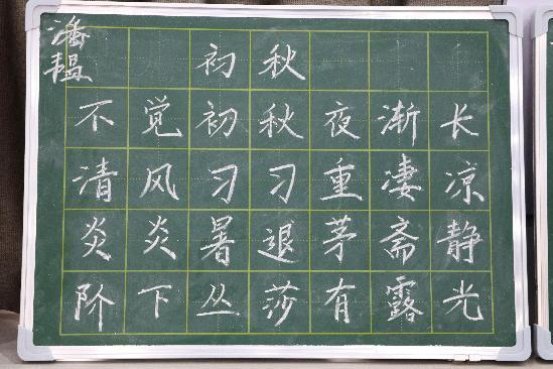 潘韫
初秋
不觉初秋夜渐长
清风习习重凄凉
炎炎暑退茅斋静
阶下丛莎有露光